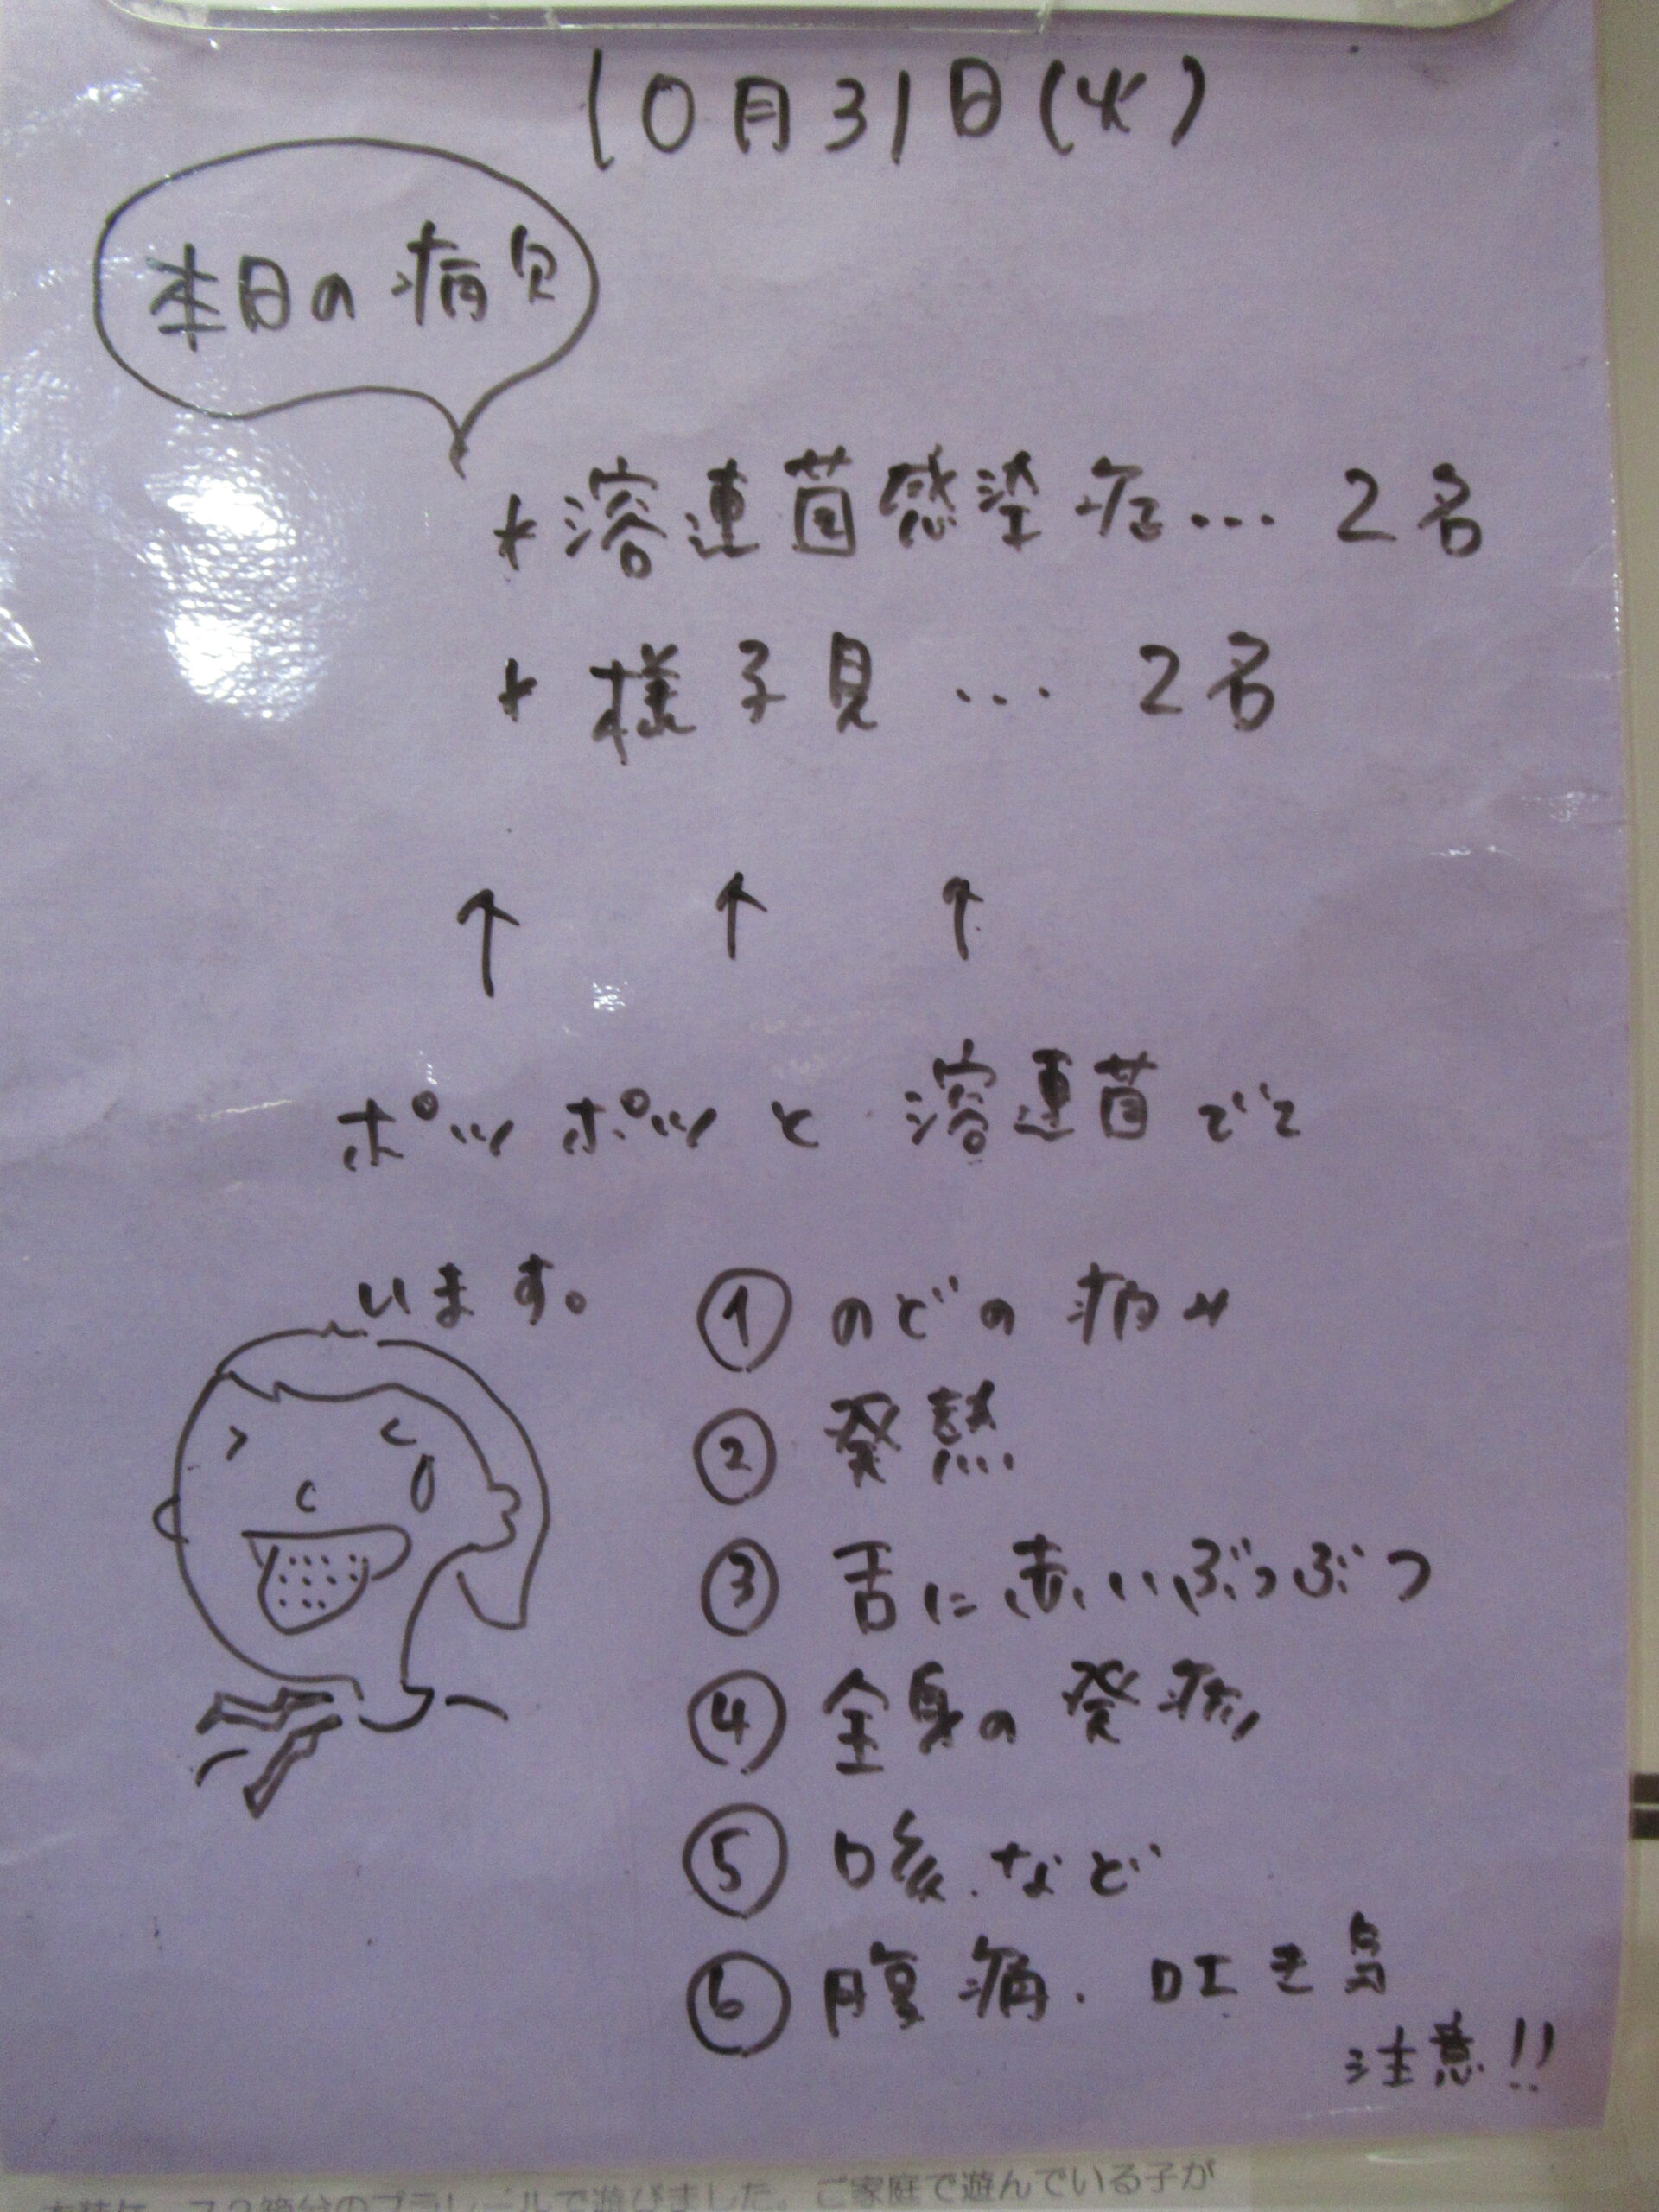 10月31日(火)
本日の病欠
*溶連菌感染症… 2名
*様子見 … 2名
↑ ↑ ↑
ポツポツと溶連菌でて
います。
① のどの痛み
② 発熱
③ 舌に赤いぶつぶつ
④ 全身の発疹
⑤ 咳.など
⑥ 腹痛.吐き気
注意!!
のプラレールで遊びました。ご家庭で遊んでいる子が